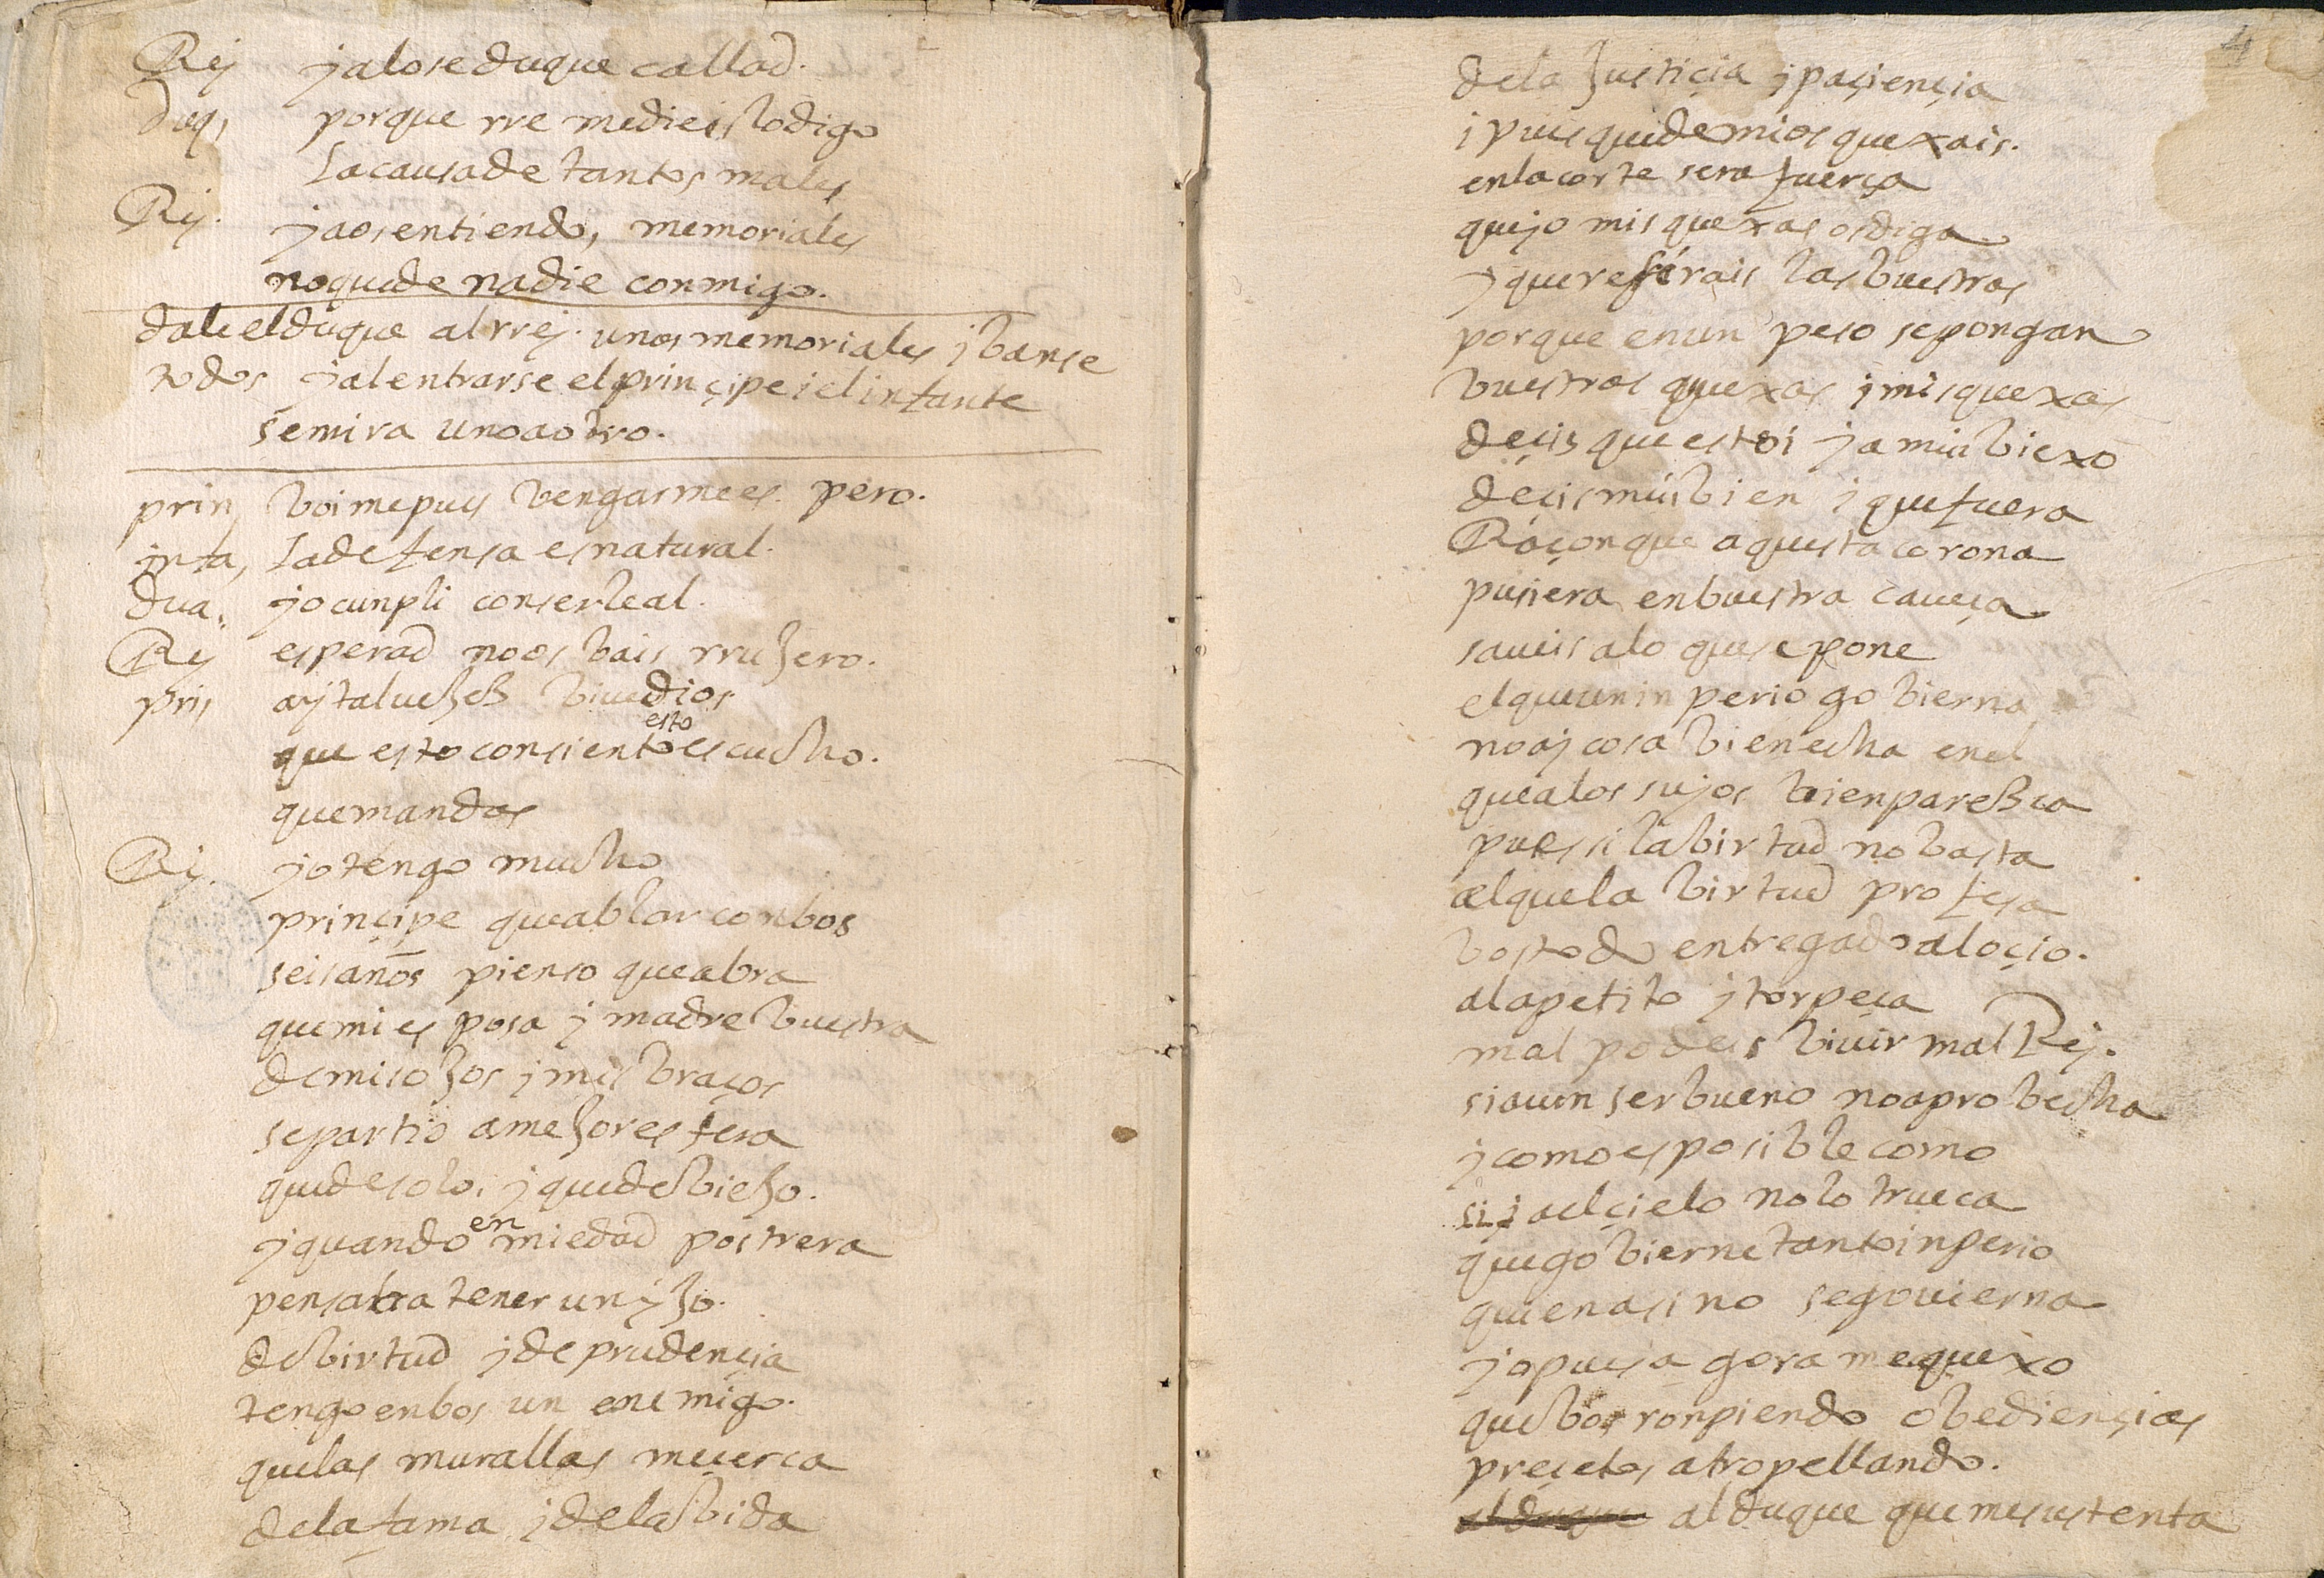 Rey ya lo se duque callad.
duq, porque rremedieis lo digo
la causa de tantos males
Rey. ya os entiendo, memoriales
no quede nadie conmigo.
dale el duque al rrey. unos memoriales i banse
todos y al entrarse el prinçipe i el infante
se mira uno a otro.
prin, boime pues bengarme es pero.
infa, la defensa es natural.
dua. yo cunpli con ser leal.
Rey esperad no os bais rrujero.
pris ay tal bejeß bibe dios
que esto consiento esto escucho.
que mandas
Rey. yo tengo mucho
prinçipe que ablar con bos
seis años pienso que abra
que mi esposa y madre buestra
de mis ojos y mis braços
se partio a mejor esfera
quede solo, y quede biejo.
y quando en mi edad postrera
pensaba tener un yjo.
de birtud y de prudençia
tengo en bos un enemigo.
que las murallas me çerca
de la fama y de la bida
4
de la justiçia y paçiençia
i pues que de mi os quexais.
en la corte sera fuerça
que yo mis quexas os diga
y que refirais las buestras
porque en un peso se pongan
buestras quexas y mis quexas
deçis que estoi ya mui biexo
deçis mui bien i que fuera
Raçon que aquesta corona
pusiera en buestra caueça
saueis a lo que se pone
el que un inperio gobierna
no ay cosa bien echa en el
que a los suyos bien pareßca
pues si la birtud no basta
a el que la birtud profesa
bos todo entregado al oçio.
al apetito y torpeça
mal podeis biuir mal Rey.
si aun ser bueno no aprobecha
y como es posible como
si ya el çielo no lo trueca
que gobierne tanto inperio
quien a si no se gouierna
yo pues agora me quexo
que bos ronpiendo obediençias
preçetos atropellando.
al duque al duque que me sustenta